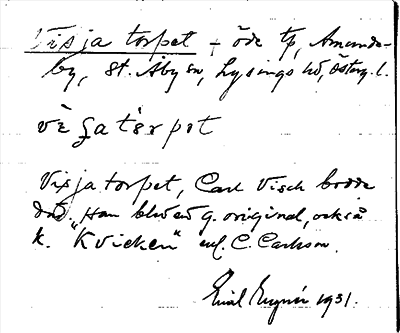 Visjatorpet + öde tp, Amunde-
by, St. Åby sn, Lysings hd, Österg. l.
vè ʒa tɵrpɵt
Visjatorpet, Carl Visch bodde
där. Han blev ett g. original, också
k. "Kvicken" enl. C. Carlson.
Emil 1931.